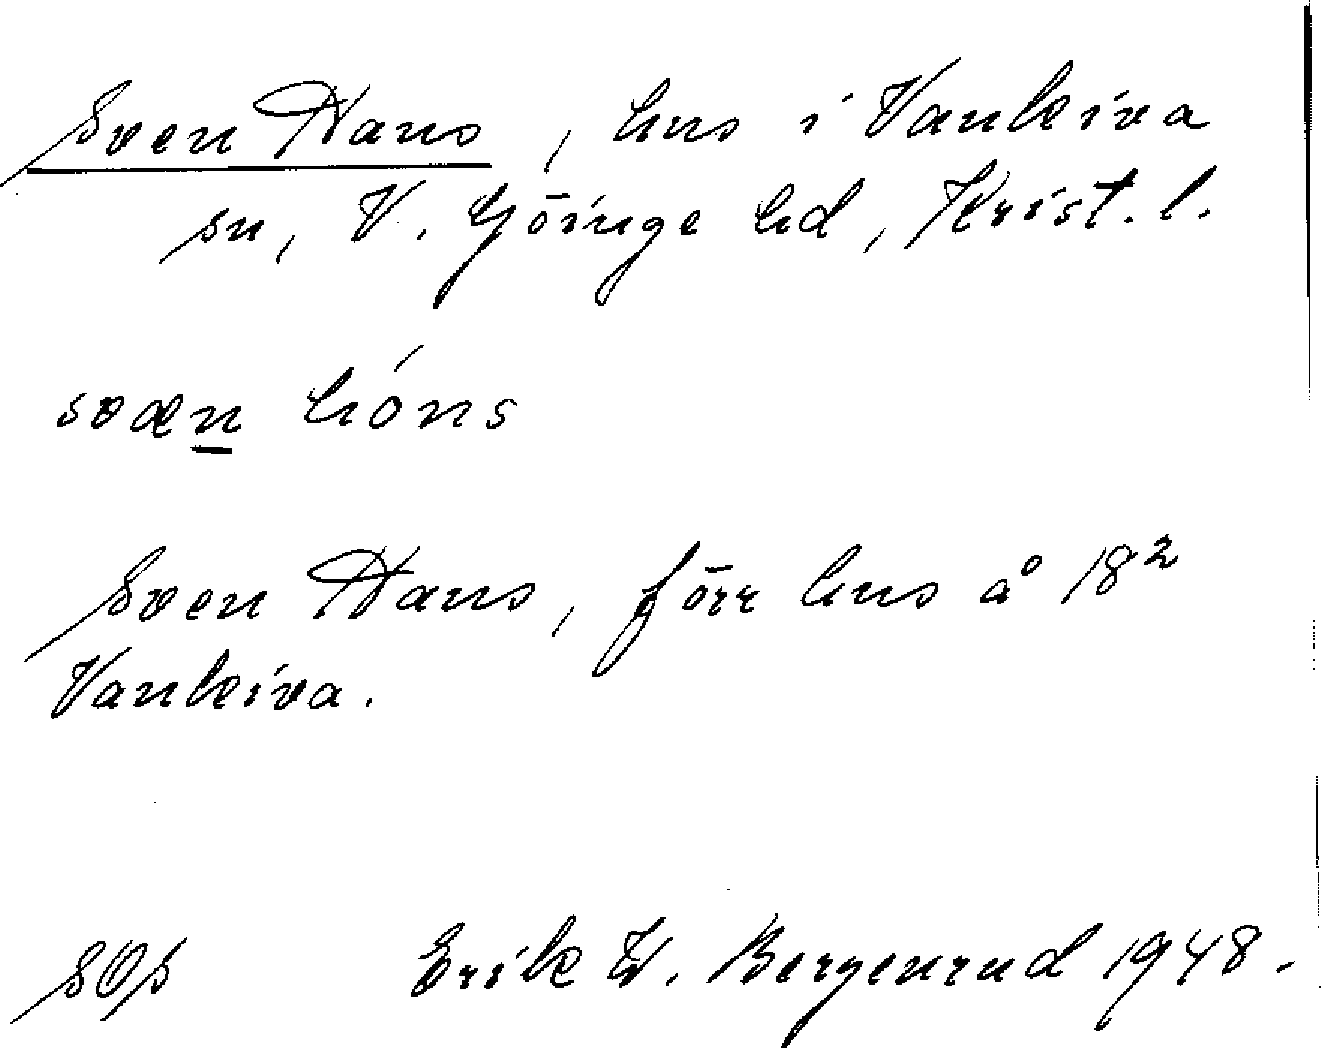 Sven Hans, hus i Vankiva
sn, V. Göinge hd, Krist. l.
svæn hóns
Sven Hans, förr hus å 18²
Vankiva.
SOP Erik W. Bergenrud 1948.